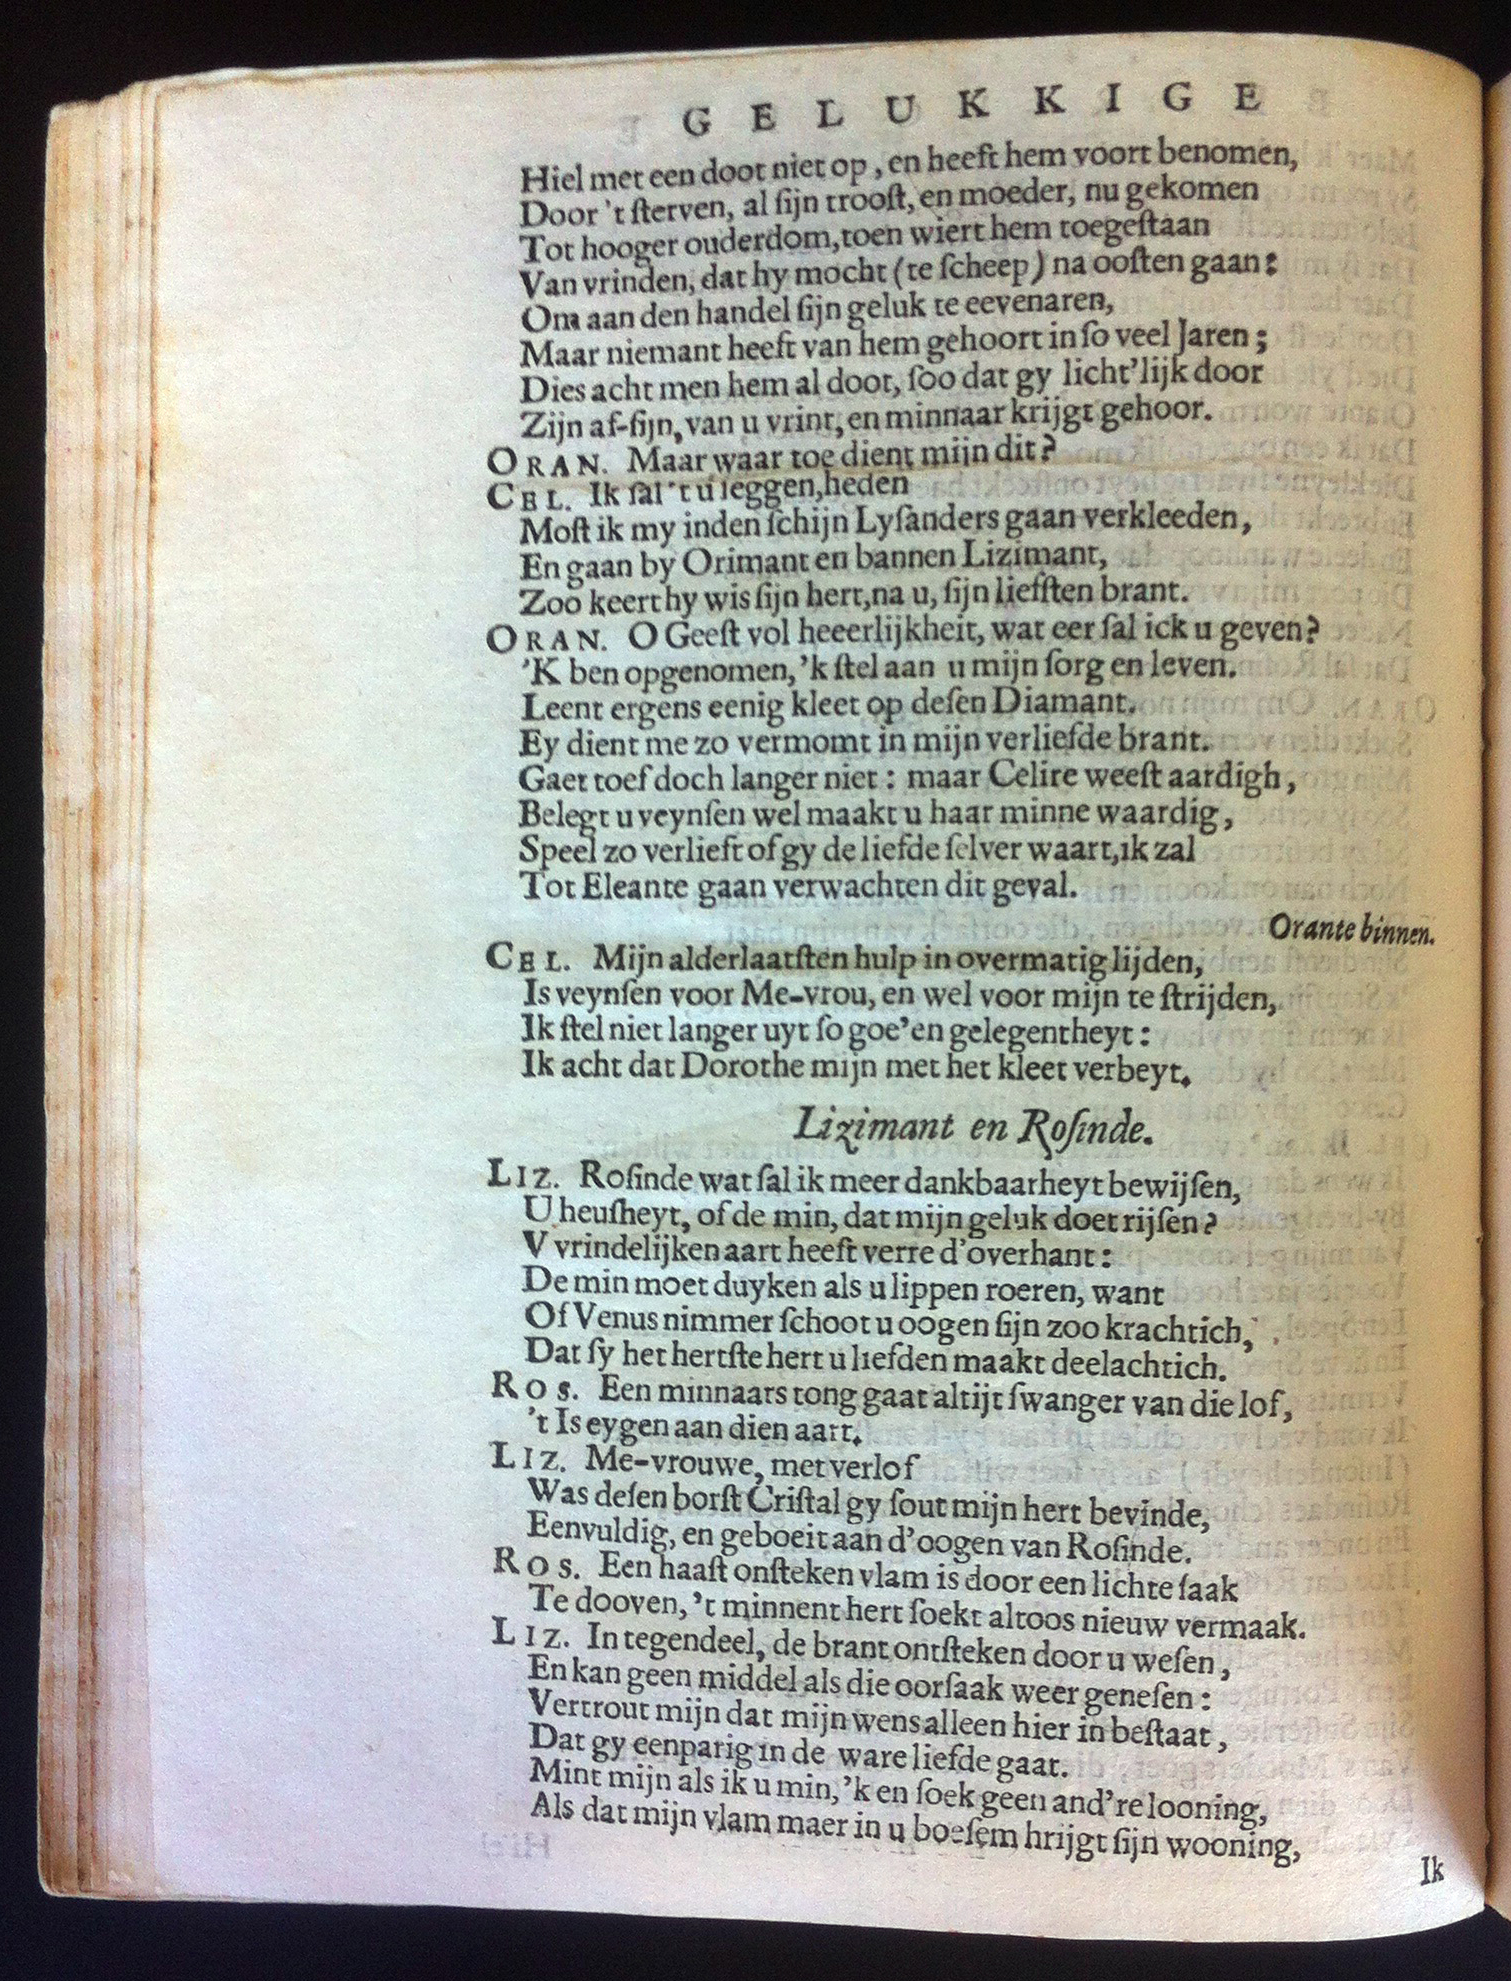 GELUKKIGE
Hiel met een doot niet op, en heeft hem voort benomen,
Door 't sterven, al sijn troost, en moeder, nu gekomen
Tot hooger ouderdom, toen wiert hem toegestaan
Van vrinden, dat hy mocht (te scheep) na oosten gaan:
Om aan den handel sijn geluk te eevenaren,
Maar niemant heeft van hem gehoort in so veel Jaren;
Dies acht men hem al doot, soo dat gy licht'lijk door
Zijn af-sijn, van u vrint, en minnaar krijgt gehoor.
ORAN. Maar waar toe dient mijn dit?
CEL. Ik sal 't u seggen, heden
Most ik my in den schijn Lysanders gaan verkleeden,
En gaan by Orimant en bannen Lizimant,
Zoo keert hy wis sijn hert, na u, sijn liefsten brant.
ORAN. O Geest vol heeerlijkheit, wat eer sal ick u geven?
'K ben opgenomen, 'k stel aan u mijn sorg en leven.
Leent ergens eenig kleet op desen Diamant.
Ey dient me zo vermomt in mijn verliefde brant.
Gaet toef doch langer niet: maar Celire weest aardigh,
Belegt u veynsen wel maakt u haar minne waardig,
Speel zo verlieft of gy de liefde selver waart, ik zal
Tot Eleante gaan verwachten dit geval.
Orante binnen.
CEL. Mijn alderlaatsten hulp in overmatig lijden,
Is veynsen voor Me-vrou, en wel voor mijn te strijden,
Ik stel niet langer uyt so goe'en gelegentheyt:
Ik acht dat Dorothe mijn met het kleet verbeyt.
Lizimant en Rosinde.
LIZ. Rosinde wat sal ik meer dankbaarheyt bewijsen,
U heusheyt, of de min, dat mijn geluk doet rijsen?
V vrindelijken aart heeft verre d'overhant:
De min moet duyken als u lippen roeren, want
Of Venus nimmer schoot u oogen sijn zoo krachtich,
Dat sy het hertste hert u liefden maakt deelachtich.
ROS. Een minnaars tong gaat altijt swanger van die lof,
't Is eygen aan dien aart.
LIZ. Me-vrouwe, met verlof
Was desen borst Cristal gy sout mijn hert bevinde,
Eenvuldig, en geboeit aan d'oogen van Rosinde.
ROS. Een haast onsteken vlam is door een lichte saak
Te dooven, 't minnent hert soekt altoos nieuw vermaak.
LIZ. In tegendeel, de brant ontsteken door u wesen,
En kan geen middel als die oorsaak weer genesen:
Vertrout mijn dat mijn wens alleen hier in bestaat,
Dat gy eenparig in de ware liefde gaat.
Mint mijn als ik u min, 'k en soek geen and're looning,
Als dat mijn vlam maer in u boesem hrijgt sijn wooning,
Ik